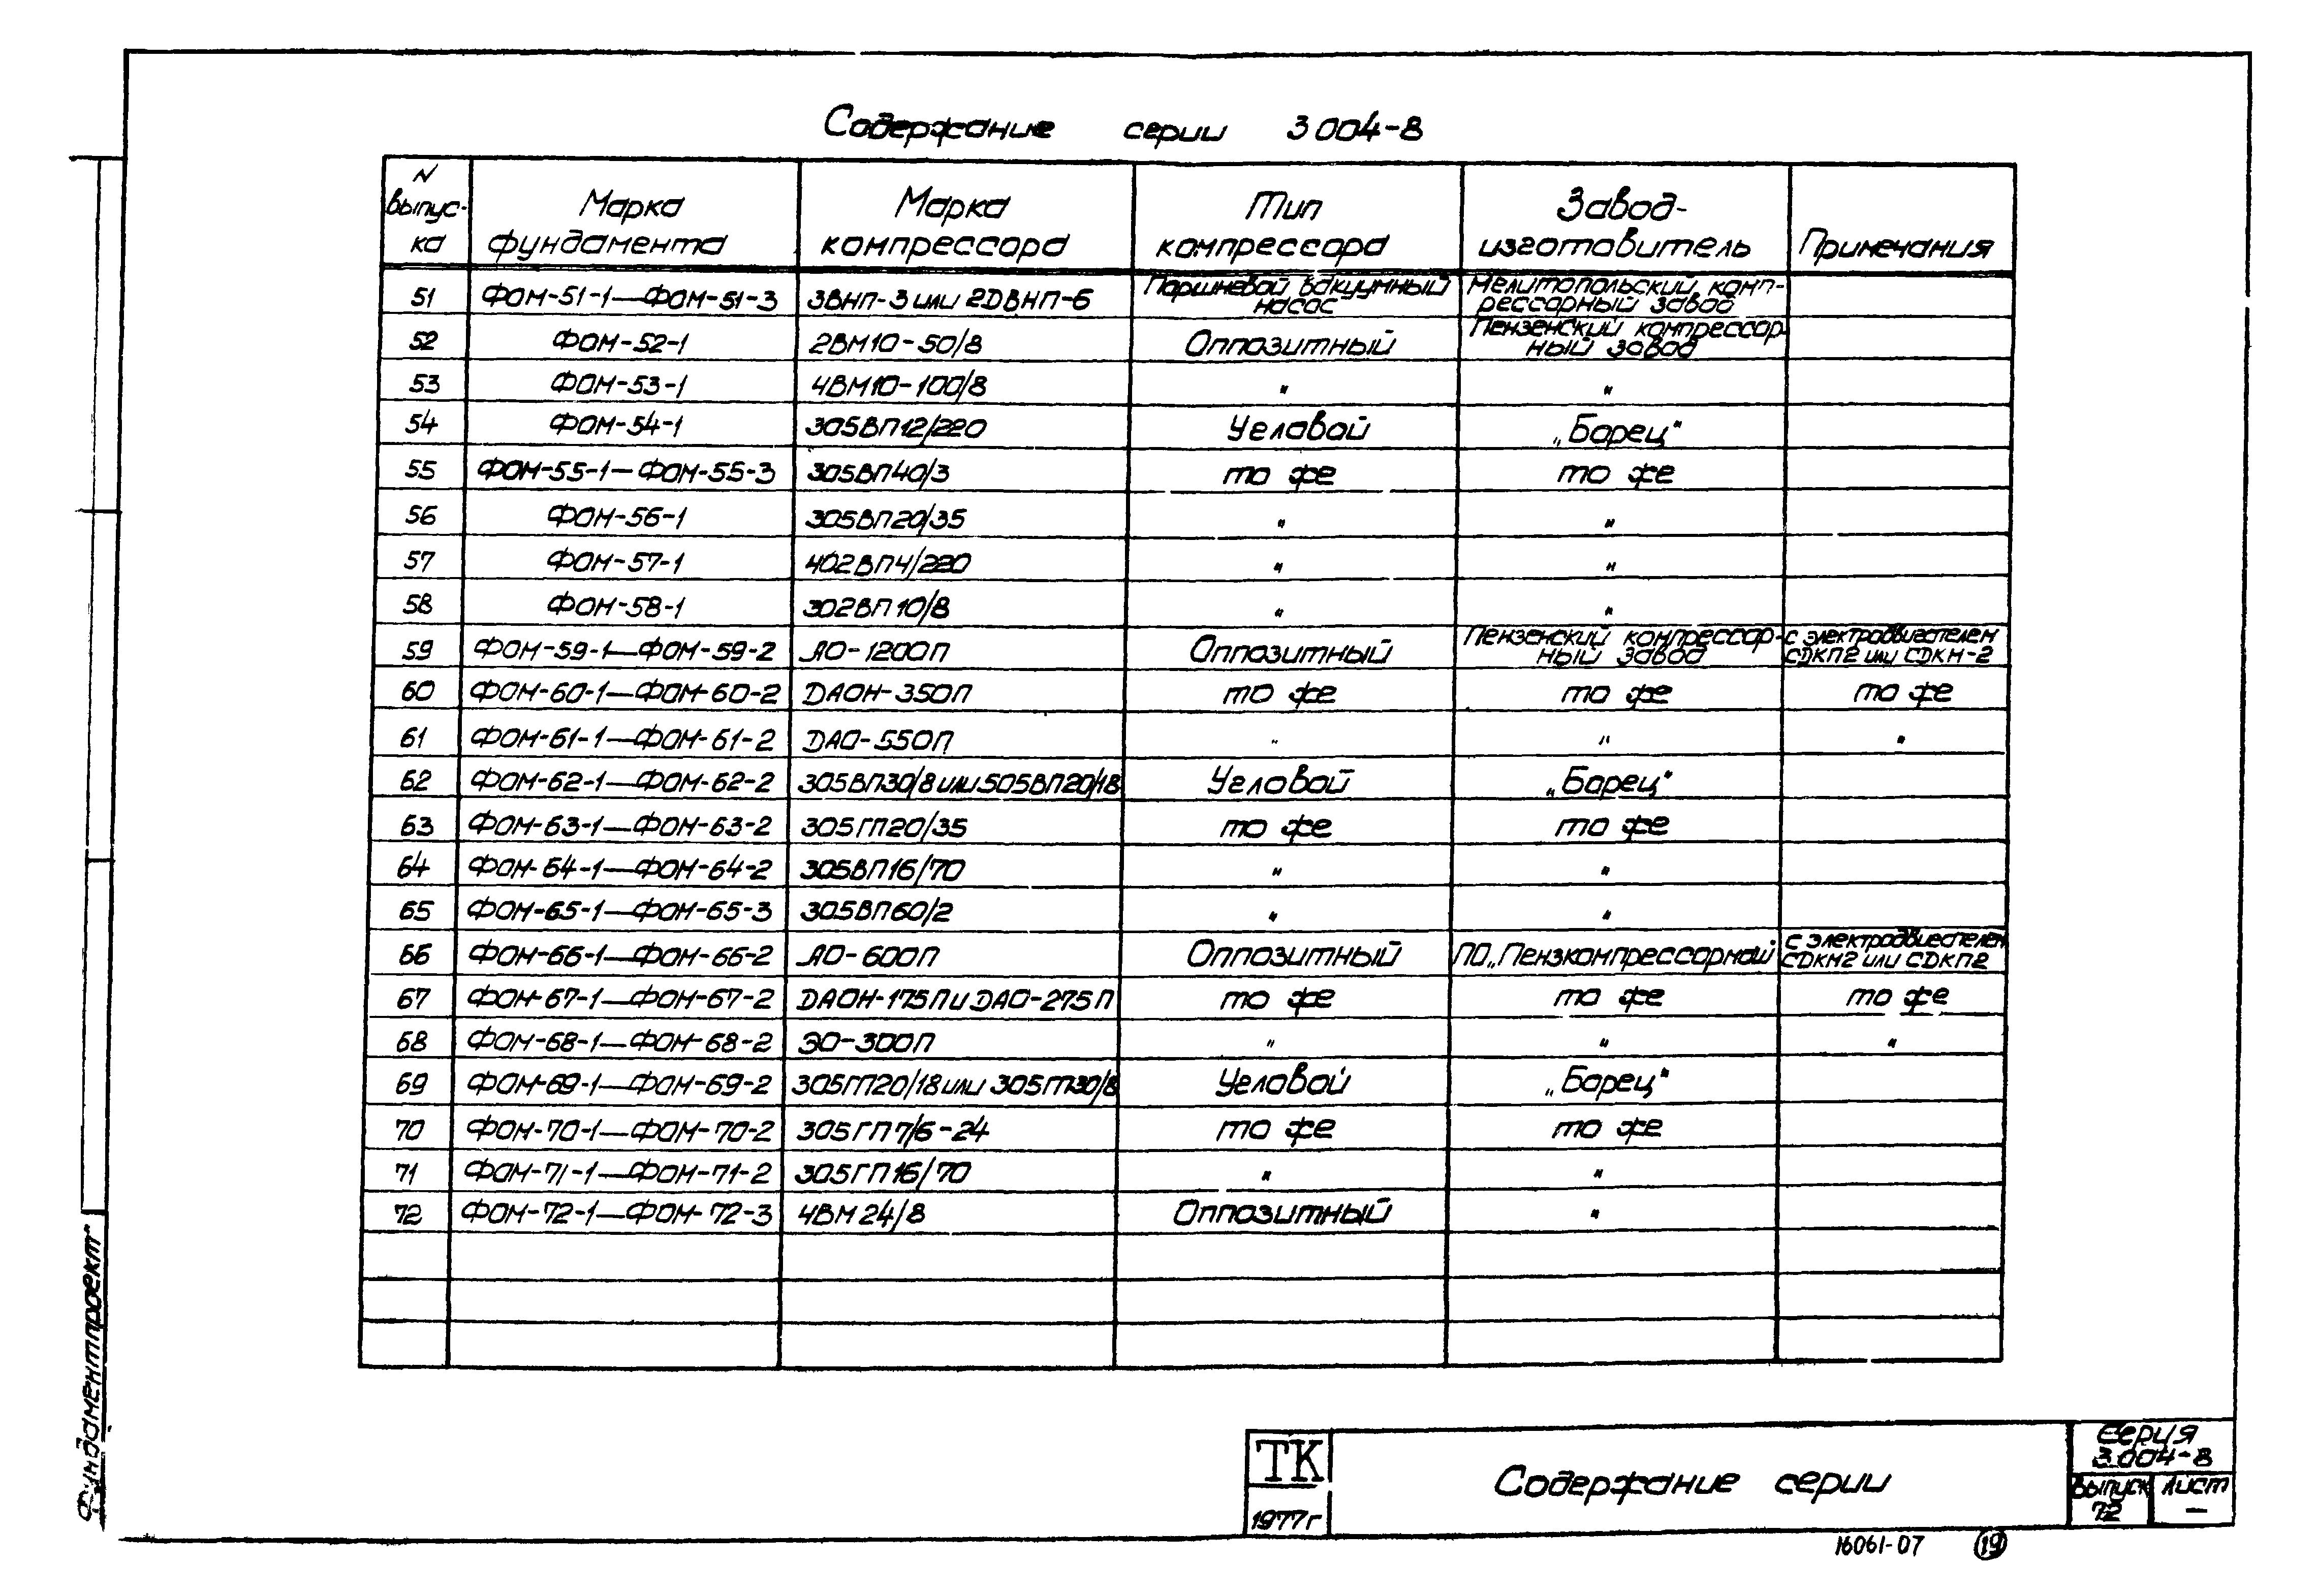 Содержание серии 3 004-8
N выпус-ка Марка фундамента Марка компрессора Тип компрессора Завод-изготовитель Примечания
51 ФОМ-51-1—ФОМ-51-3 3ВНП-3 или 2ДВНП-6 Поршневой вакуумный насос Мелитопольский комп-рессорный завод
52 ФОМ-52-1 2ВМ10-50/8 Оппозитный Пензенский компрессор-ный завод
53 ФОМ-53-1 4ВМ10-100/8 " "
54 ФОМ-54-1 305ВП12/220 Угловой „Борец"
55 ФОМ-55-1—ФОМ-55-3 305ВП40/3 то же то же
56 ФОМ-56-1 305ВП20/35 " "
57 ФОМ-57-1 402ВП4/220 " "
58 ФОМ-58-1 302ВП10/8 " "
59 ФОМ-59-1—ФОМ-59-2 АО-1200П Оппозитный Пензенский компрессор-ный завод с электродвигателем СДКП2 или СДКМ-2
60 ФОМ-60-1—ФОМ-60-2 ДАОН-350П то же то же то же
61 ФОМ-61-1—ФОМ-61-2 ДАО-550П " " "
62 ФОМ-62-1—ФОМ-62-2 305ВП30/8 или 505ВП20/18 Угловой „Борец"
63 ФОМ-63-1—ФОМ-63-2 305ГП20/35 то же то же
64 ФОМ-64-1—ФОМ-64-2 305ВП16/70 " "
65 ФОМ-65-1—ФОМ-65-3 305ВП60/2 " "
66 ФОМ-66-1—ФОМ-66-2 АО-600П Оппозитный ПО„Пензкомпрессормаш с электродвигателем СДКМ2 или СДКП2
67 ФОМ-67-1—ФОМ-67-2 ДАОН-175П и ДАО-275П то же то же то же
68 ФОМ-68-1—ФОМ-68-2 ЭО-300П " " "
69 ФОМ-69-1—ФОМ-69-2 305ГП20/18 или 305ГП30/8 Угловой „Борец"
70 ФОМ-70-1—ФОМ-70-2 305ГП7/6-24 то же то же
71 ФОМ-71-1—ФОМ-71-2 305ГП16/70 " "
72 ФОМ-72-1—ФОМ-72-3 4ВМ24/8 Оппозитный "
Фундаментпроект
ТК
1977г
Содержание серии
Серия
3.004-8
Выпуск Лист
72 —
16061-07 19